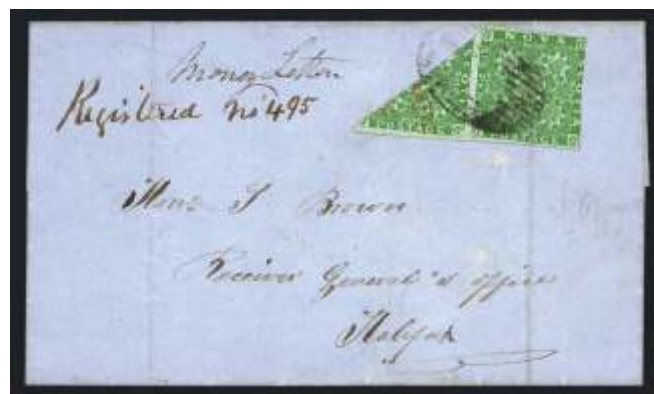 Money Letter
Registered No 495
Hons J Brown
Receiver General's office
Halifax